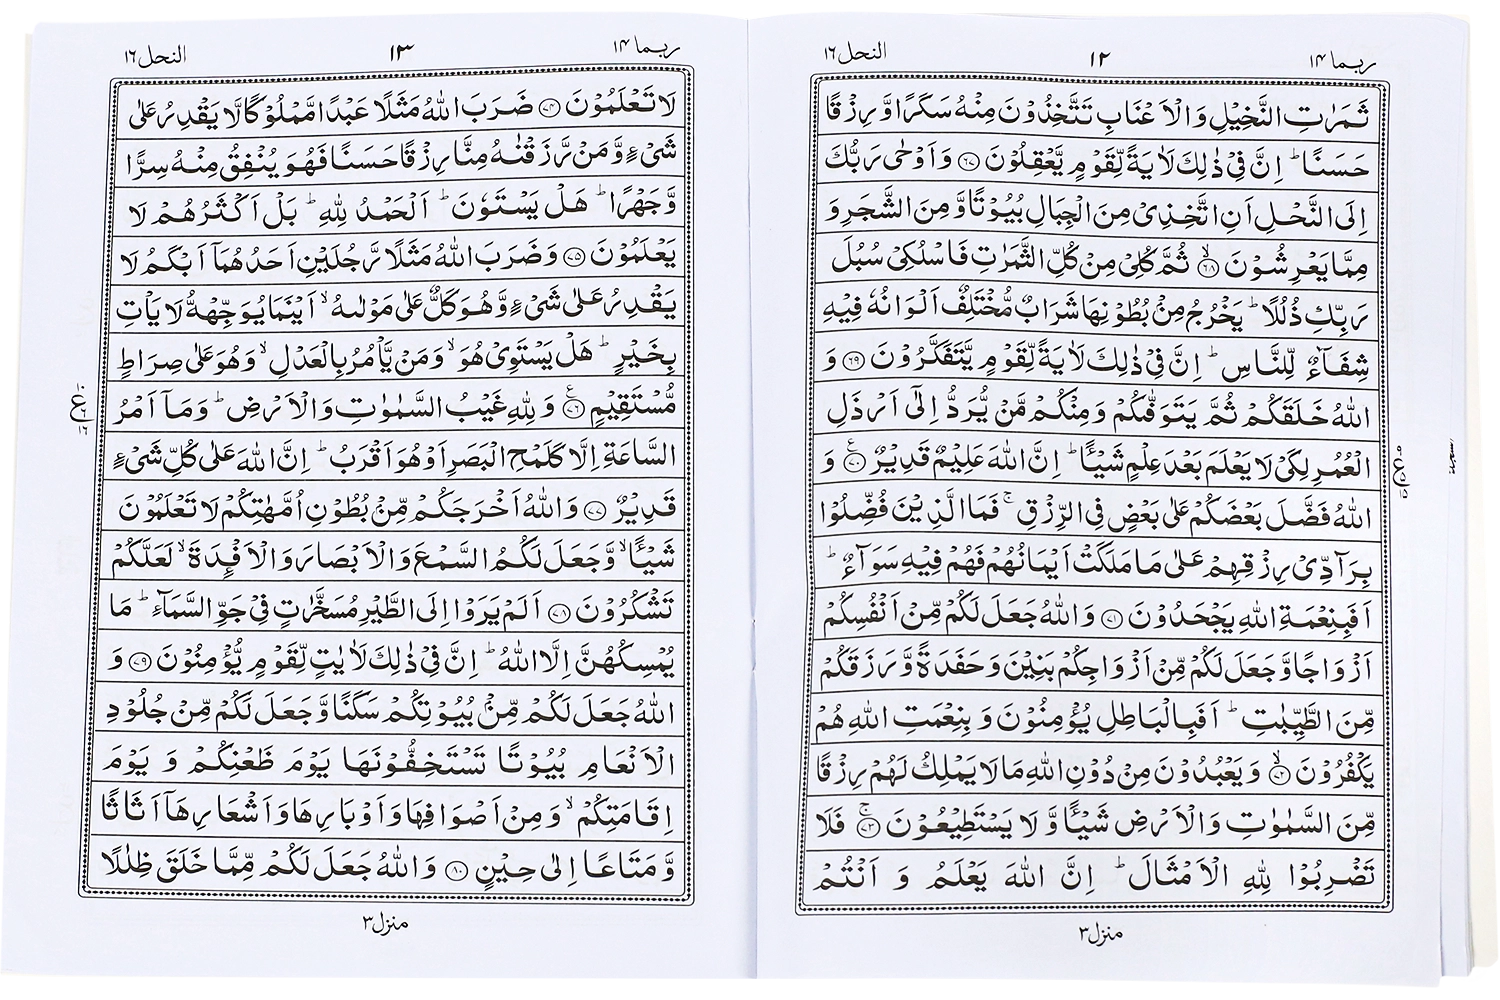 ربما ١٤
١٢
النحل ١٦
ثَمَرٰتِ النَّخِيْلِ وَالْاَعْنَابِ تَتَّخِذُوْنَ مِنْهُ سَكَرًا وَّرِزْقًا
حَسَنًا ؕ اِنَّ فِيْ ذٰلِكَ لَاٰيَةً لِّقَوْمٍ يَّعْقِلُوْنَ ﴿٦٧﴾ وَاَوْحٰى رَبُّكَ
اِلَى النَّحْلِ اَنِ اتَّخِذِيْ مِنَ الْجِبَالِ بُيُوْتًا وَّمِنَ الشَّجَرِ وَ
مِمَّا يَعْرِشُوْنَ ﴿٦٨﴾ۙ ثُمَّ كُلِيْ مِنْ كُلِّ الثَّمَرٰتِ فَاسْلُكِيْ سُبُلَ
رَبِّكِ ذُلُلًا ؕ يَخْرُجُ مِنْ بُطُوْنِهَا شَرَابٌ مُّخْتَلِفٌ اَلْوَانُهٗ فِيْهِ
شِفَآءٌ لِّلنَّاسِ ؕ اِنَّ فِيْ ذٰلِكَ لَاٰيَةً لِّقَوْمٍ يَّتَفَكَّرُوْنَ ﴿٦٩﴾ وَ
اللّٰهُ خَلَقَكُمْ ثُمَّ يَتَوَفّٰىكُمْ وَمِنْكُمْ مَّنْ يُّرَدُّ اِلٰٓى اَرْذَلِ
الْعُمُرِ لِكَيْ لَا يَعْلَمَ بَعْدَ عِلْمٍ شَيْـًٔا ؕ اِنَّ اللّٰهَ عَلِيْمٌ قَدِيْرٌ ﴿٧٠﴾ وَ
اللّٰهُ فَضَّلَ بَعْضَكُمْ عَلٰى بَعْضٍ فِي الرِّزْقِ ۚ فَمَا الَّذِيْنَ فُضِّلُوْا
بِرَآدِّيْ رِزْقِهِمْ عَلٰى مَا مَلَكَتْ اَيْمَانُهُمْ فَهُمْ فِيْهِ سَوَآءٌ ؕ
اَفَبِنِعْمَةِ اللّٰهِ يَجْحَدُوْنَ ﴿٧١﴾ وَاللّٰهُ جَعَلَ لَكُمْ مِّنْ اَنْفُسِكُمْ
اَزْوَاجًا وَّجَعَلَ لَكُمْ مِّنْ اَزْوَاجِكُمْ بَنِيْنَ وَحَفَدَةً وَّرَزَقَكُمْ
مِّنَ الطَّيِّبٰتِ ؕ اَفَبِالْبَاطِلِ يُؤْمِنُوْنَ وَبِنِعْمَتِ اللّٰهِ هُمْ
يَكْفُرُوْنَ ﴿٧٢﴾ۙ وَيَعْبُدُوْنَ مِنْ دُوْنِ اللّٰهِ مَا لَا يَمْلِكُ لَهُمْ رِزْقًا
مِّنَ السَّمٰوٰتِ وَالْاَرْضِ شَيْـًٔا وَّلَا يَسْتَطِيْعُوْنَ ﴿٧٣﴾ۚ فَلَا
تَضْرِبُوْا لِلّٰهِ الْاَمْثَالَ ؕ اِنَّ اللّٰهَ يَعْلَمُ وَ اَنْتُمْ
منزل ٣
ربما ١٤
١٣
النحل ١٦
لَا تَعْلَمُوْنَ ﴿٧٤﴾ ضَرَبَ اللّٰهُ مَثَلًا عَبْدًا مَّمْلُوْكًا لَّا يَقْدِرُ عَلٰى
شَيْءٍ وَّمَنْ رَّزَقْنٰهُ مِنَّا رِزْقًا حَسَنًا فَهُوَ يُنْفِقُ مِنْهُ سِرًّا
وَّجَهْرًا ؕ هَلْ يَسْتَوٗنَ ؕ اَلْحَمْدُ لِلّٰهِ ؕ بَلْ اَكْثَرُهُمْ لَا
يَعْلَمُوْنَ ﴿٧٥﴾ وَضَرَبَ اللّٰهُ مَثَلًا رَّجُلَيْنِ اَحَدُهُمَآ اَبْكَمُ لَا
يَقْدِرُ عَلٰى شَيْءٍ وَّهُوَ كَلٌّ عَلٰى مَوْلٰىهُ ۙ اَيْنَمَا يُوَجِّهْهُّ لَا يَاْتِ
بِخَيْرٍ ؕ هَلْ يَسْتَوِيْ هُوَ ۙ وَمَنْ يَّاْمُرُ بِالْعَدْلِ ۙ وَهُوَ عَلٰى صِرَاطٍ
مُّسْتَقِيْمٍ ﴿٧٦﴾ وَلِلّٰهِ غَيْبُ السَّمٰوٰتِ وَالْاَرْضِ ؕ وَمَآ اَمْرُ
السَّاعَةِ اِلَّا كَلَمْحِ الْبَصَرِ اَوْ هُوَ اَقْرَبُ ؕ اِنَّ اللّٰهَ عَلٰى كُلِّ شَيْءٍ
قَدِيْرٌ ﴿٧٧﴾ وَاللّٰهُ اَخْرَجَكُمْ مِّنْۢ بُطُوْنِ اُمَّهٰتِكُمْ لَا تَعْلَمُوْنَ
شَيْـًٔا ۙ وَّجَعَلَ لَكُمُ السَّمْعَ وَالْاَبْصَارَ وَالْاَفْـِٕدَةَ ۙ لَعَلَّكُمْ
تَشْكُرُوْنَ ﴿٧٨﴾ اَلَمْ يَرَوْا اِلَى الطَّيْرِ مُسَخَّرٰتٍ فِيْ جَوِّ السَّمَآءِ ؕ مَا
يُمْسِكُهُنَّ اِلَّا اللّٰهُ ؕ اِنَّ فِيْ ذٰلِكَ لَاٰيٰتٍ لِّقَوْمٍ يُّؤْمِنُوْنَ ﴿٧٩﴾ وَ
اللّٰهُ جَعَلَ لَكُمْ مِّنْۢ بُيُوْتِكُمْ سَكَنًا وَّجَعَلَ لَكُمْ مِّنْ جُلُوْدِ
الْاَنْعَامِ بُيُوْتًا تَسْتَخِفُّوْنَهَا يَوْمَ ظَعْنِكُمْ وَ يَوْمَ
اِقَامَتِكُمْ ۙ وَمِنْ اَصْوَافِهَا وَاَوْبَارِهَا وَاَشْعَارِهَآ اَثَاثًا
وَّمَتَاعًا اِلٰى حِيْنٍ ﴿٨٠﴾ وَاللّٰهُ جَعَلَ لَكُمْ مِّمَّا خَلَقَ ظِلٰلًا
منزل ٣